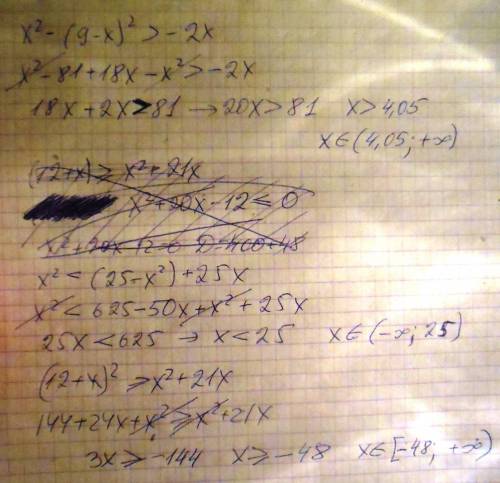 x² - (9-x)² > -2x
x² - 81 + 18x - x² > -2x
18x + 2x > 81 → 20x > 81   x > 4,05
x ∈ (4,05; +∞)
(12+x) ≥ x² + 21x
x² + 20x - 12 ≤ 0
x² + 20x - 12 = 0   D = 400 + 48
x² < (25 - x²) + 25x
x² < 625 - 50x + x² + 25x
25x < 625 → x < 25   x ∈ (-∞; 25)
(12+x)² ≥ x² + 21x
144 + 24x + x² ≥ x² + 21x
3x ≥ -144   x ≥ -48   x ∈ [-48; +∞)